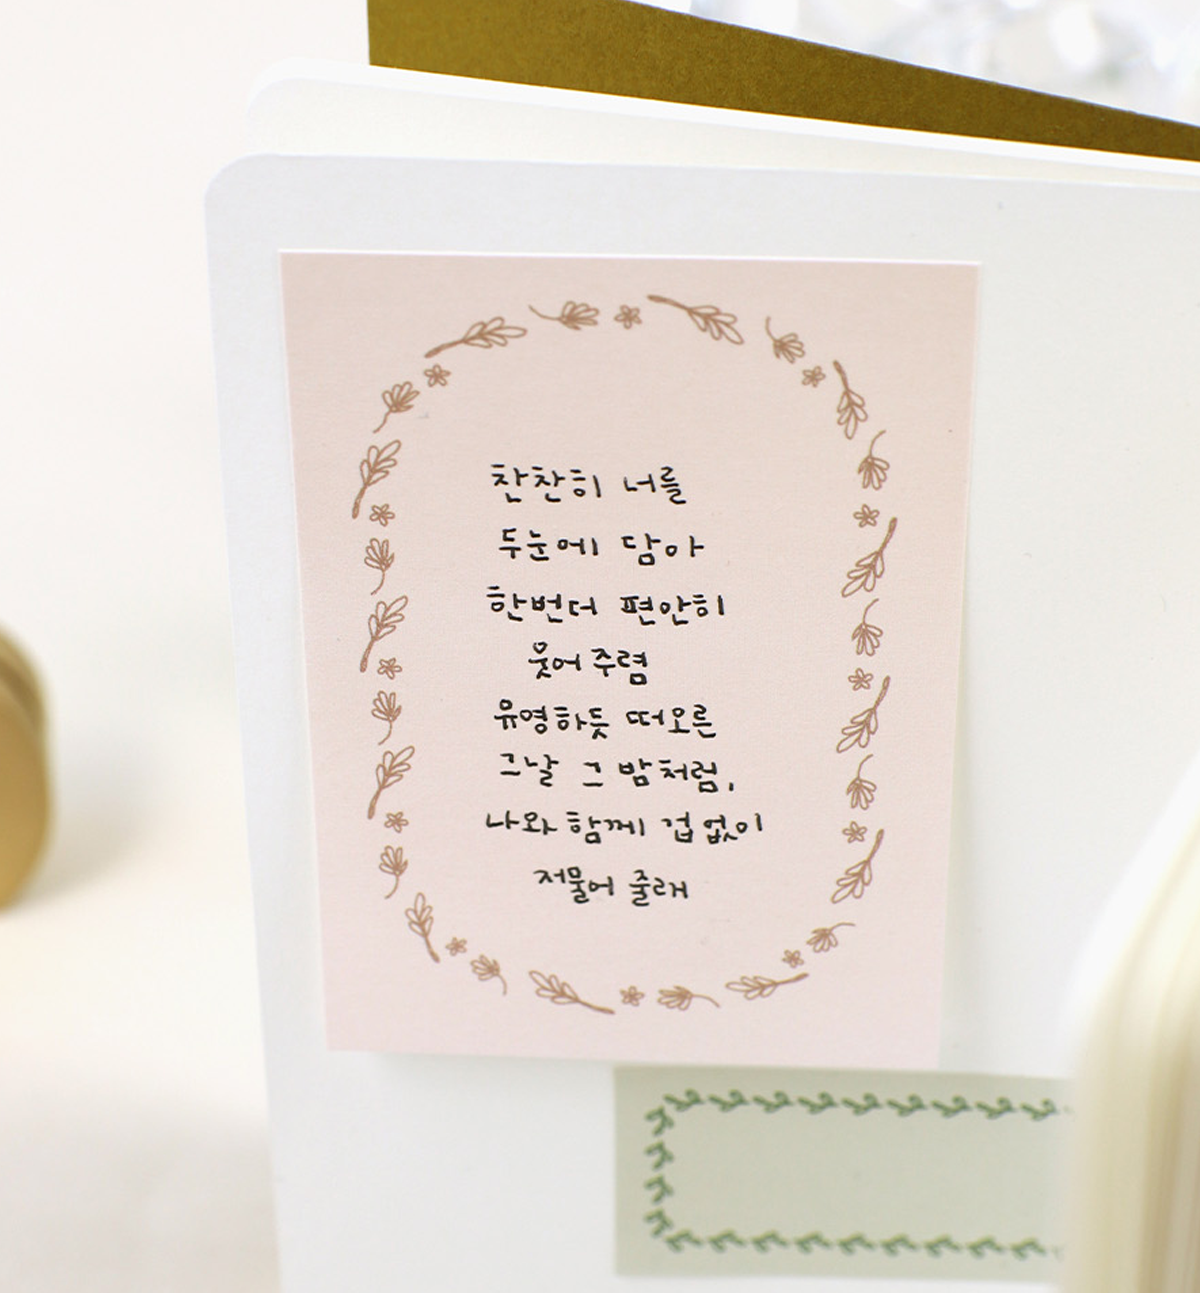 찬찬히 너를
두눈에 담아
한번더 편안히
웃어주렴
유영하듯 떠오른
그날 그 밤처럼,
나와 함께 겁없이
저물어 줄래